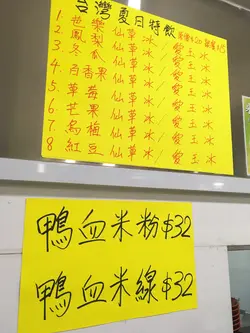 台灣夏日特飲
1. 芭樂 仙草冰/愛玉冰
2. 鳳梨 仙草冰/愛玉冰
3. 冬瓜 仙草冰/愛玉冰
4. 百香果 仙草冰/愛玉冰
5. 草莓 仙草冰/愛玉冰
6. 芒果 仙草冰/愛玉冰
7. 烏梅 仙草冰/愛玉冰
8 紅豆 仙草冰/愛玉冰
鴨血米粉$32
鴨血米線$32